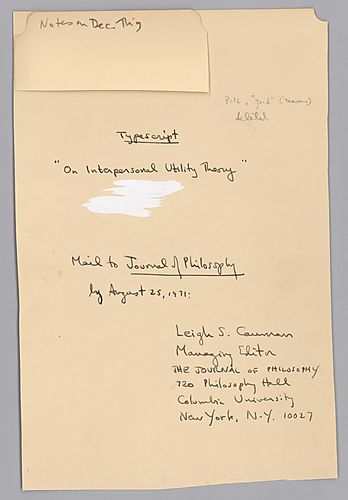 Notes on Dec. Th'g
P-12, "good" (reasons)
Typescript
"On Interpersonal Utility Theory"
Mail to Journal of Philosophy
by August 25, 1971:
Leigh S. Cauman
Managing Editor
THE JOURNAL OF PHILOSOPHY
720 Philosophy Hall
Columbia University
New York, N.Y. 10027